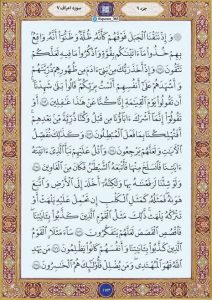 جزء ۹
سورة اعراف ۷
وَإِذْ نَتَقْنَا ٱلْجَبَلَ فَوْقَهُمْ كَأَنَّهُۥ ظُلَّةٌ وَظَنُّوٓا۟ أَنَّهُۥ وَاقِعٌۢ
بِهِمْ خُذُوا۟ مَآ ءَاتَيْنَٰكُم بِقُوَّةٍ وَٱذْكُرُوا۟ مَا فِيهِ لَعَلَّكُمْ
تَتَّقُونَ ۝١٧١ وَإِذْ أَخَذَ رَبُّكَ مِنۢ بَنِىٓ ءَادَمَ مِن ظُهُورِهِمْ ذُرِّيَّتَهُمْ
وَأَشْهَدَهُمْ عَلَىٰٓ أَنفُسِهِمْ أَلَسْتُ بِرَبِّكُمْ قَالُوا۟ بَلَىٰ شَهِدْنَآ
أَن تَقُولُوا۟ يَوْمَ ٱلْقِيَٰمَةِ إِنَّا كُنَّا عَنْ هَٰذَا غَٰفِلِينَ ۝١٧٢ أَوْ
تَقُولُوٓا۟ إِنَّمَآ أَشْرَكَ ءَابَآؤُنَا مِن قَبْلُ وَكُنَّا ذُرِّيَّةً مِّنۢ بَعْدِهِمْ
أَفَتُهْلِكُنَا بِمَا فَعَلَ ٱلْمُبْطِلُونَ ۝١٧٣ وَكَذَٰلِكَ نُفَصِّلُ
ٱلْءَايَٰتِ وَلَعَلَّهُمْ يَرْجِعُونَ ۝١٧٤ وَٱتْلُ عَلَيْهِمْ نَبَأَ ٱلَّذِىٓ ءَاتَيْنَٰهُ
ءَايَٰتِنَا فَٱنسَلَخَ مِنْهَا فَأَتْبَعَهُ ٱلشَّيْطَٰنُ فَكَانَ مِنَ ٱلْغَاوِينَ ۝١٧٥
وَلَوْ شِئْنَا لَرَفَعْنَٰهُ بِهَا وَلَٰكِنَّهُۥٓ أَخْلَدَ إِلَى ٱلْأَرْضِ وَٱتَّبَعَ
هَوَىٰهُ فَمَثَلُهُۥ كَمَثَلِ ٱلْكَلْبِ إِن تَحْمِلْ عَلَيْهِ يَلْهَثْ أَوْ
تَتْرُكْهُ يَلْهَث ذَّٰلِكَ مَثَلُ ٱلْقَوْمِ ٱلَّذِينَ كَذَّبُوا۟ بِـَٔايَٰتِنَا
فَٱقْصُصِ ٱلْقَصَصَ لَعَلَّهُمْ يَتَفَكَّرُونَ ۝١٧٦ سَآءَ مَثَلًا ٱلْقَوْمُ
ٱلَّذِينَ كَذَّبُوا۟ بِـَٔايَٰتِنَا وَأَنفُسَهُمْ كَانُوا۟ يَظْلِمُونَ ۝١٧٧ مَن يَهْدِ
ٱللَّهُ فَهُوَ ٱلْمُهْتَدِى وَمَن يُضْلِلْ فَأُو۟لَٰٓئِكَ هُمُ ٱلْخَٰسِرُونَ ۝١٧٨
۱۷۳